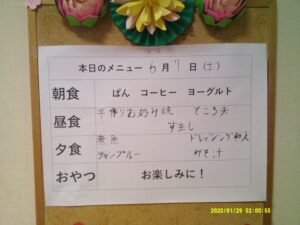 本日のメニュー 6月7日(土)
朝食 ぱん コーヒー ヨーグルト
昼食 手作りお好み焼 ところ天
すまし
夕食 煮魚 ドレッシング和え
チャンプルー みそ汁
おやつ お楽しみに!
2020/01/29 02:00:55